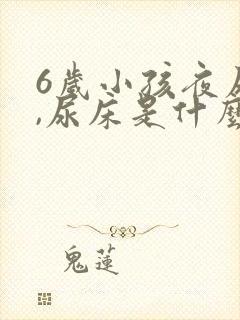 6歲小孩夜
,尿床是什麼
鬼蓮